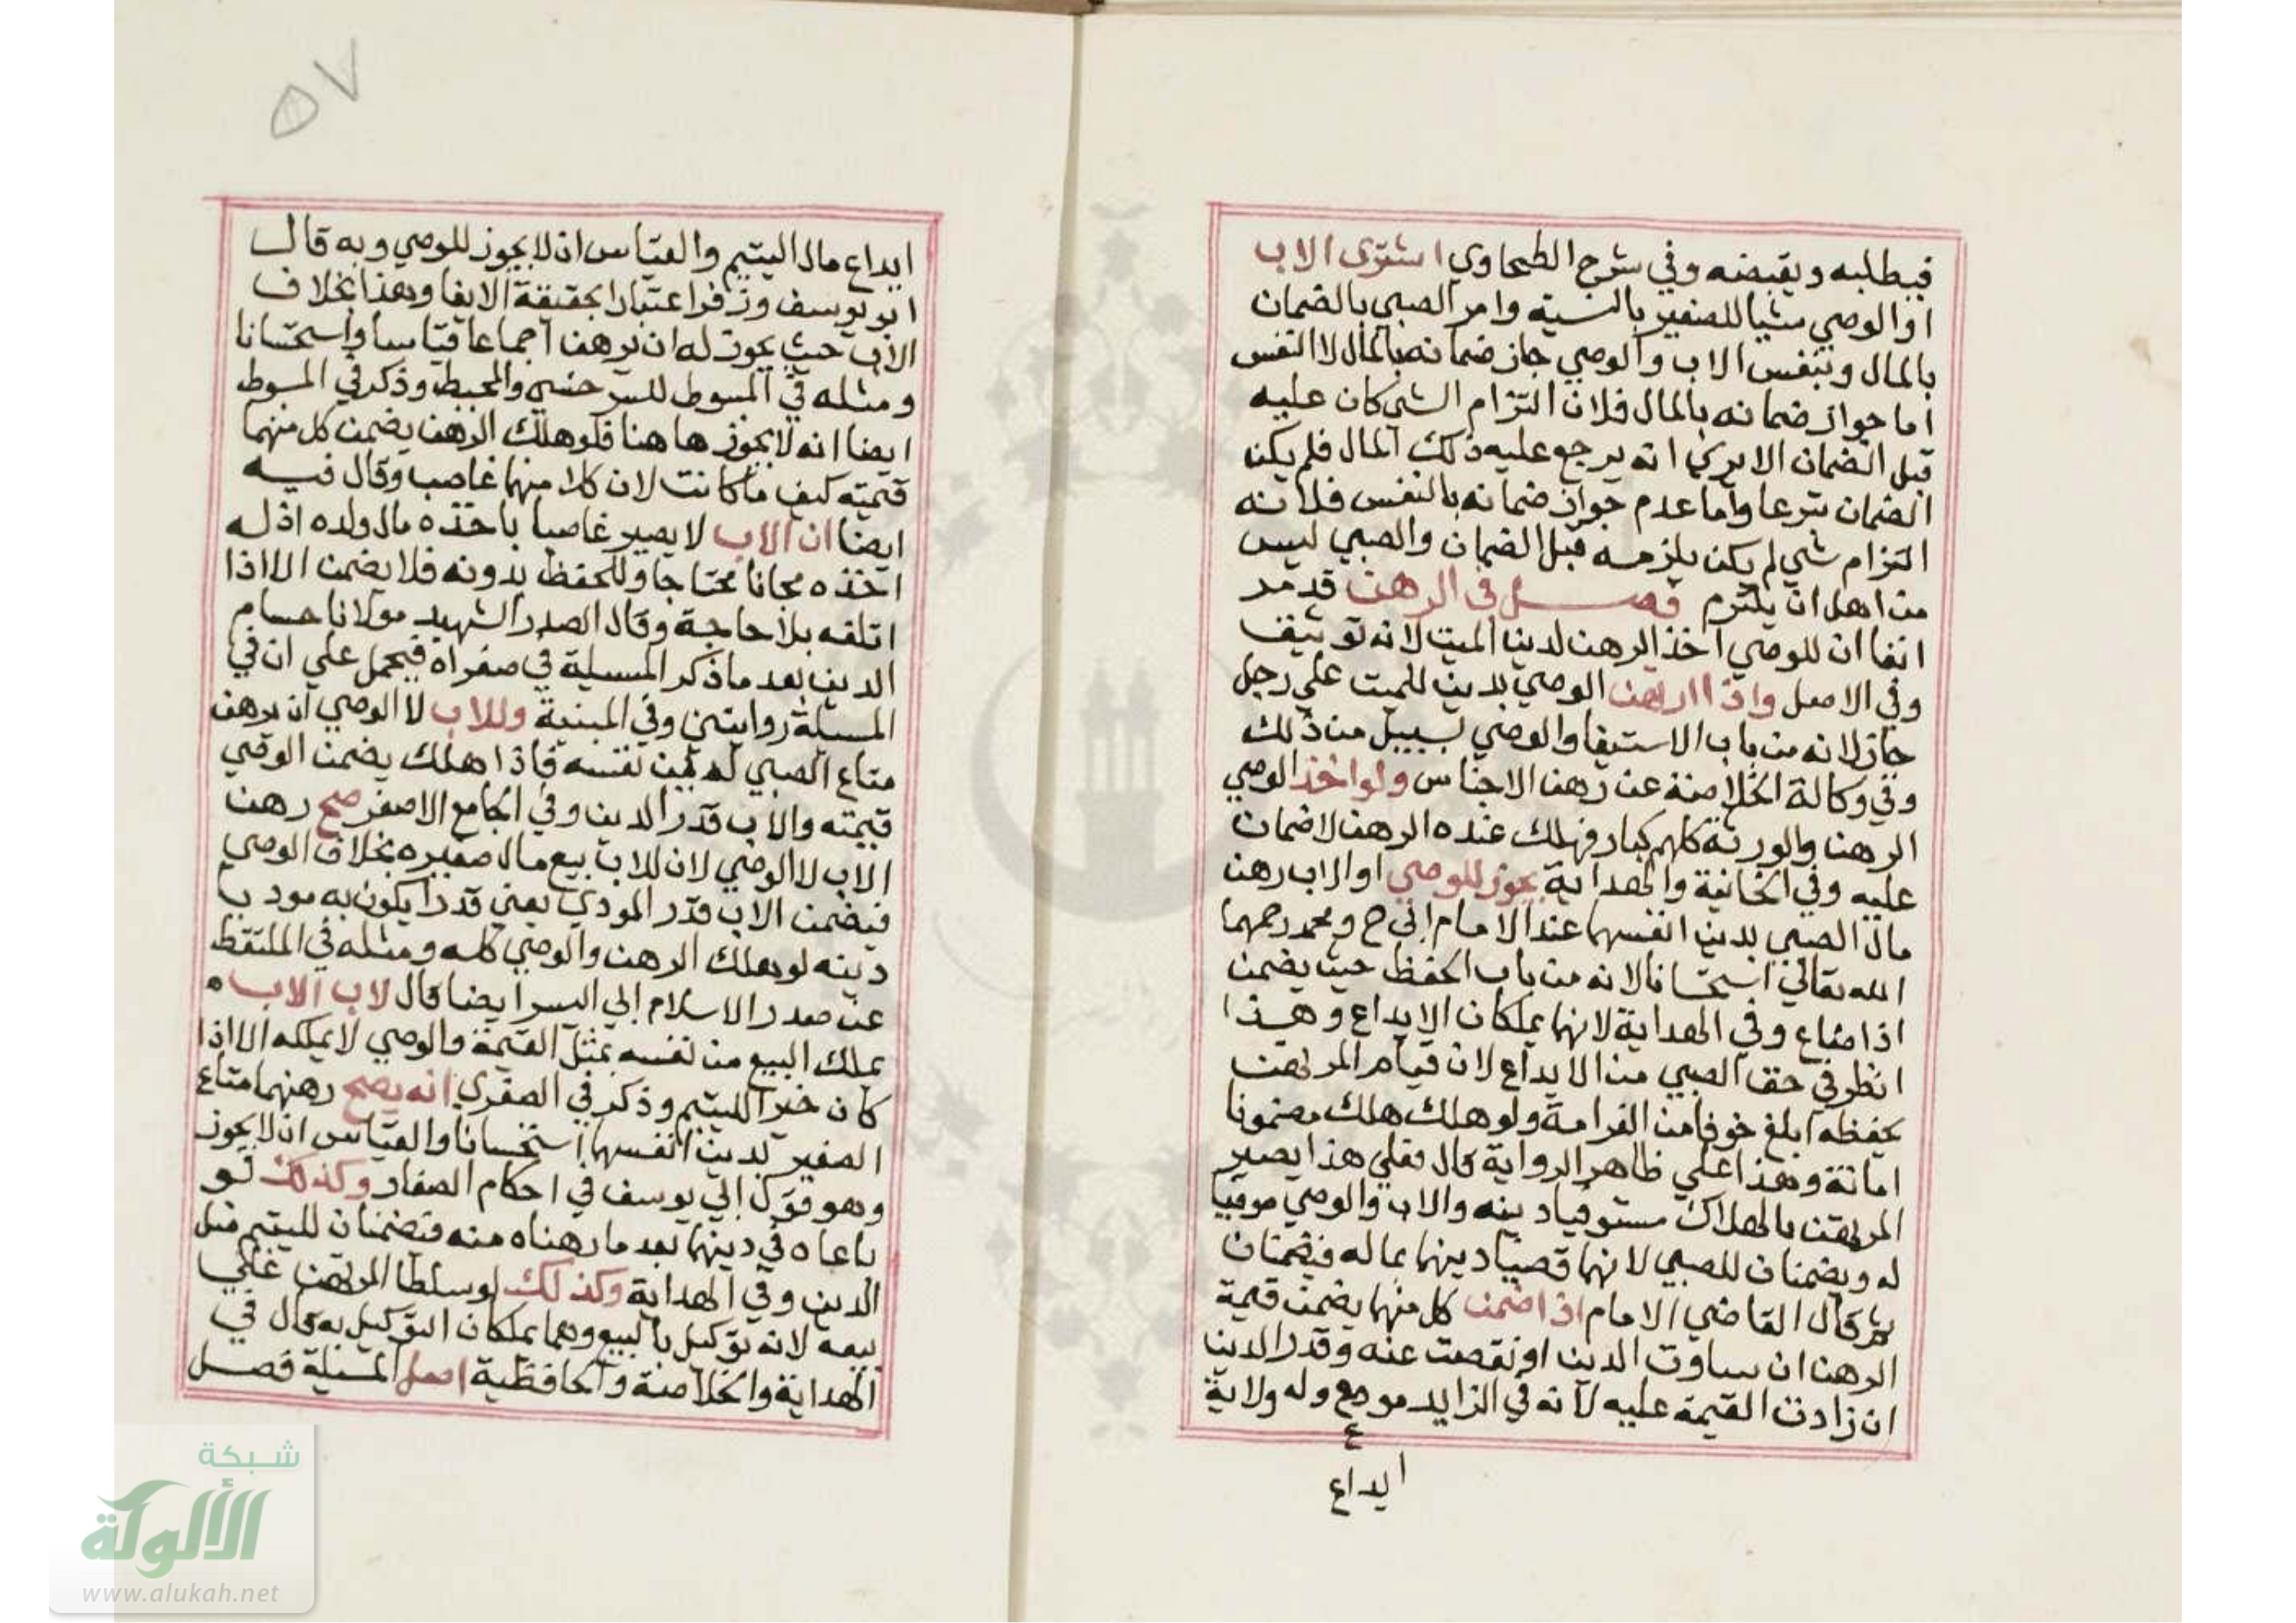 فيطلبه ويقبضه وفي شرح الطحاوي اشترى الاب
او الوصي شيا للصغير بالنسية وامر الصبي بالضمان
بالمال وبنفس الاب والوصي جاز ضمانه بالمال لا النفس
اما جواز ضمانه بالمال فلان التزام الشي كان عليه
قبل الضمان الا يري انه يرجع عليه ذلك المال فلم يكن
الضمان تبرعا واما عدم جواز ضمانه بالنفس فلانه
التزام شي لم يكن يلزمه قبل الضمان والصبي ليس
من اهل ان يلتزم فصل في الرهن قد مر
انفا ان للوصي اخذ الرهن لدين الميت لانه توثيق
وفي الاصل واذا ارتهن الوصي بدين للميت علي رجل
جاز لانه من باب الاستيفا والوصي بسبيل من ذلك
وفي وكالة الخلاصة عن رهن الاجناس ولو اخذ الوصي
الرهن والورثة كلهم كبار فهلك عنده الرهن لا ضمان
عليه وفي الخانية والهداية يجوز للوصي او الاب رهن
مال الصبي بدين انفسهما عند الامام ابي ح ومحمد رحمهما
الله تعالي استحسانا لانه من باب الحفظ حيث يضمن
اذا ضاع وفي الهداية لانهما يملكان الايداع وهذا
انظر في حق الصبي من الايداع لان قيام المرتهن
بحفظه ابلغ خوفا من الغرامة ولو هلك هلك مضمونا
امانة وهذا علي ظاهر الرواية قال فعلي هذا يصير
المرتهن بالهلاك مستوفيا دينه والاب والوصي موفيا
له ويضمنان للصبي لانهما قضيا دينهما بماله فيضمنان
ثم قال القاضي الامام اذا ضمن كل منهما يضمن قيمة
الرهن ان ساوت الدين او نقصت عنه وقدر الدين
ان زادت القيمة عليه لانه في الزايد مودع وله ولاية
ايداع
٥٧
ايداع مال اليتيم والقياس ان لا يجوز للوصي وبه قال
ابو يوسف وزفر اعتبارا بحقيقة الايفا وهذا بخلاف
الاب حيث يجوز له ان يرهن اجماعا قياسا واستحسانا
ومثله في المبسوط للسرخسي والمحيط وذكر في المبسوط
ايضا انه لا يجوز ها هنا فلو هلك الرهن يضمن كل منهما
قيمته كيف ما كانت لان كلا منهما غاصب وقال فيه
ايضا ان الاب لا يصير غاصبا باخذه مال ولده اذ له
اخذه مجانا محتاجا وللحفظ بدونه فلا يضمن الا اذا
اتلفه بلا حاجة وقال الصدر الشهيد مولانا حسام
الدين بعد ما ذكر المسيلة في صغراه فيحمل علي ان في
المسيلة روايتين وفي المنية وللاب لا الوصي ان يرهن
متاع الصبي له من نفسه فاذا هلك يضمن الوصي
قيمته والاب قدر الدين وفي الجامع الاصغر صح رهن
الاب لا الوصي لان للاب بيع مال صغيره بخلاف الوصي
فيضمن الاب قدر المودي يعني قدرا يكون به موديا
دينه لو هلك الرهن والوصي كله ومثله في الملتقط
عن صدر الاسلام ابي اليسر ايضا قال لاب الاب
يملك البيع من نفسه بمثل القيمة والوصي لا يملكه الا اذا
كان خيرا لليتيم وذكر في الصغري انه يصح رهنهما متاع
الصغير بدين انفسهما استحسانا والقياس ان لا يجوز
وهو قول ابي يوسف في احكام الصغار وكذلك لو
باعاه في دينهما بعد ما رهناه منه فتضمنان لليتيم مثل
الدين وفي الهداية وكذلك لو سلطا المرتهن علي
بيعه لانه توكيل بالبيع وهما يملكان التوكيل به قال في
الهداية والخلاصة والحافظية اصل المسيلة فصل
شبكة
الألوكة
www.alukah.net